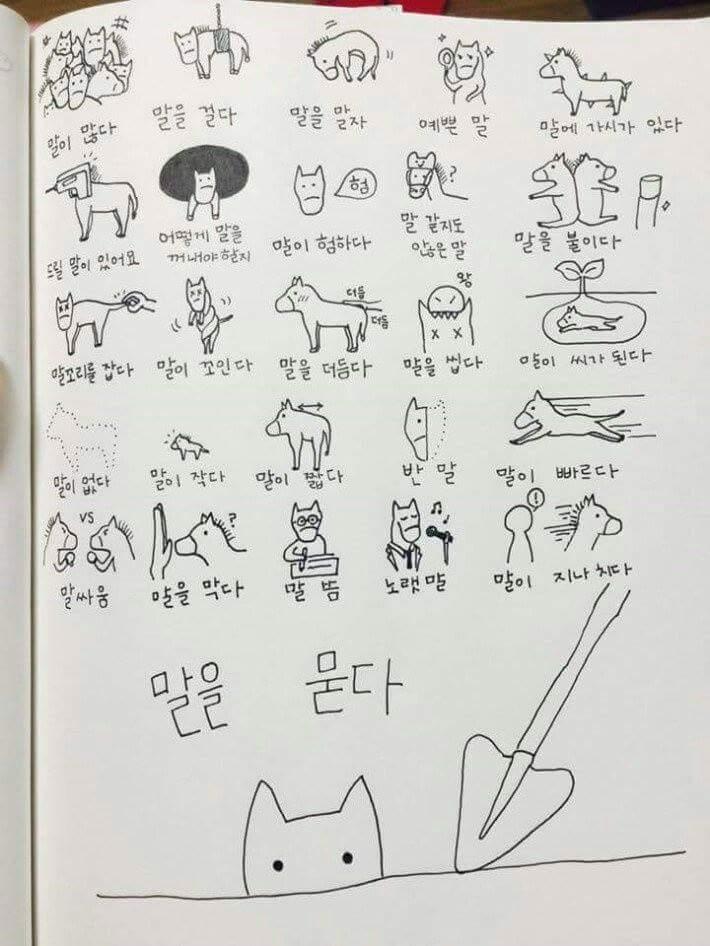 말이 많다
말을 걸다
말을 말자
예쁜 말
말에 가시가 있다
험
?
드릴 말이 있어요
어떻게 말을
꺼내야 할지
말이 험하다
말 같지도
않은 말
말을 붙이다
더듬
더듬
왕
말꼬리를 잡다
말이 꼬인다
말을 더듬다
말을 씹다
말이 씨가 된다
말이 없다
말이 작다
말이 짧다
반 말
말이 빠르다
VS
?
!
말싸움
말을 막다
말 뜸
노랫말
말이 지나치다
말을 묻다